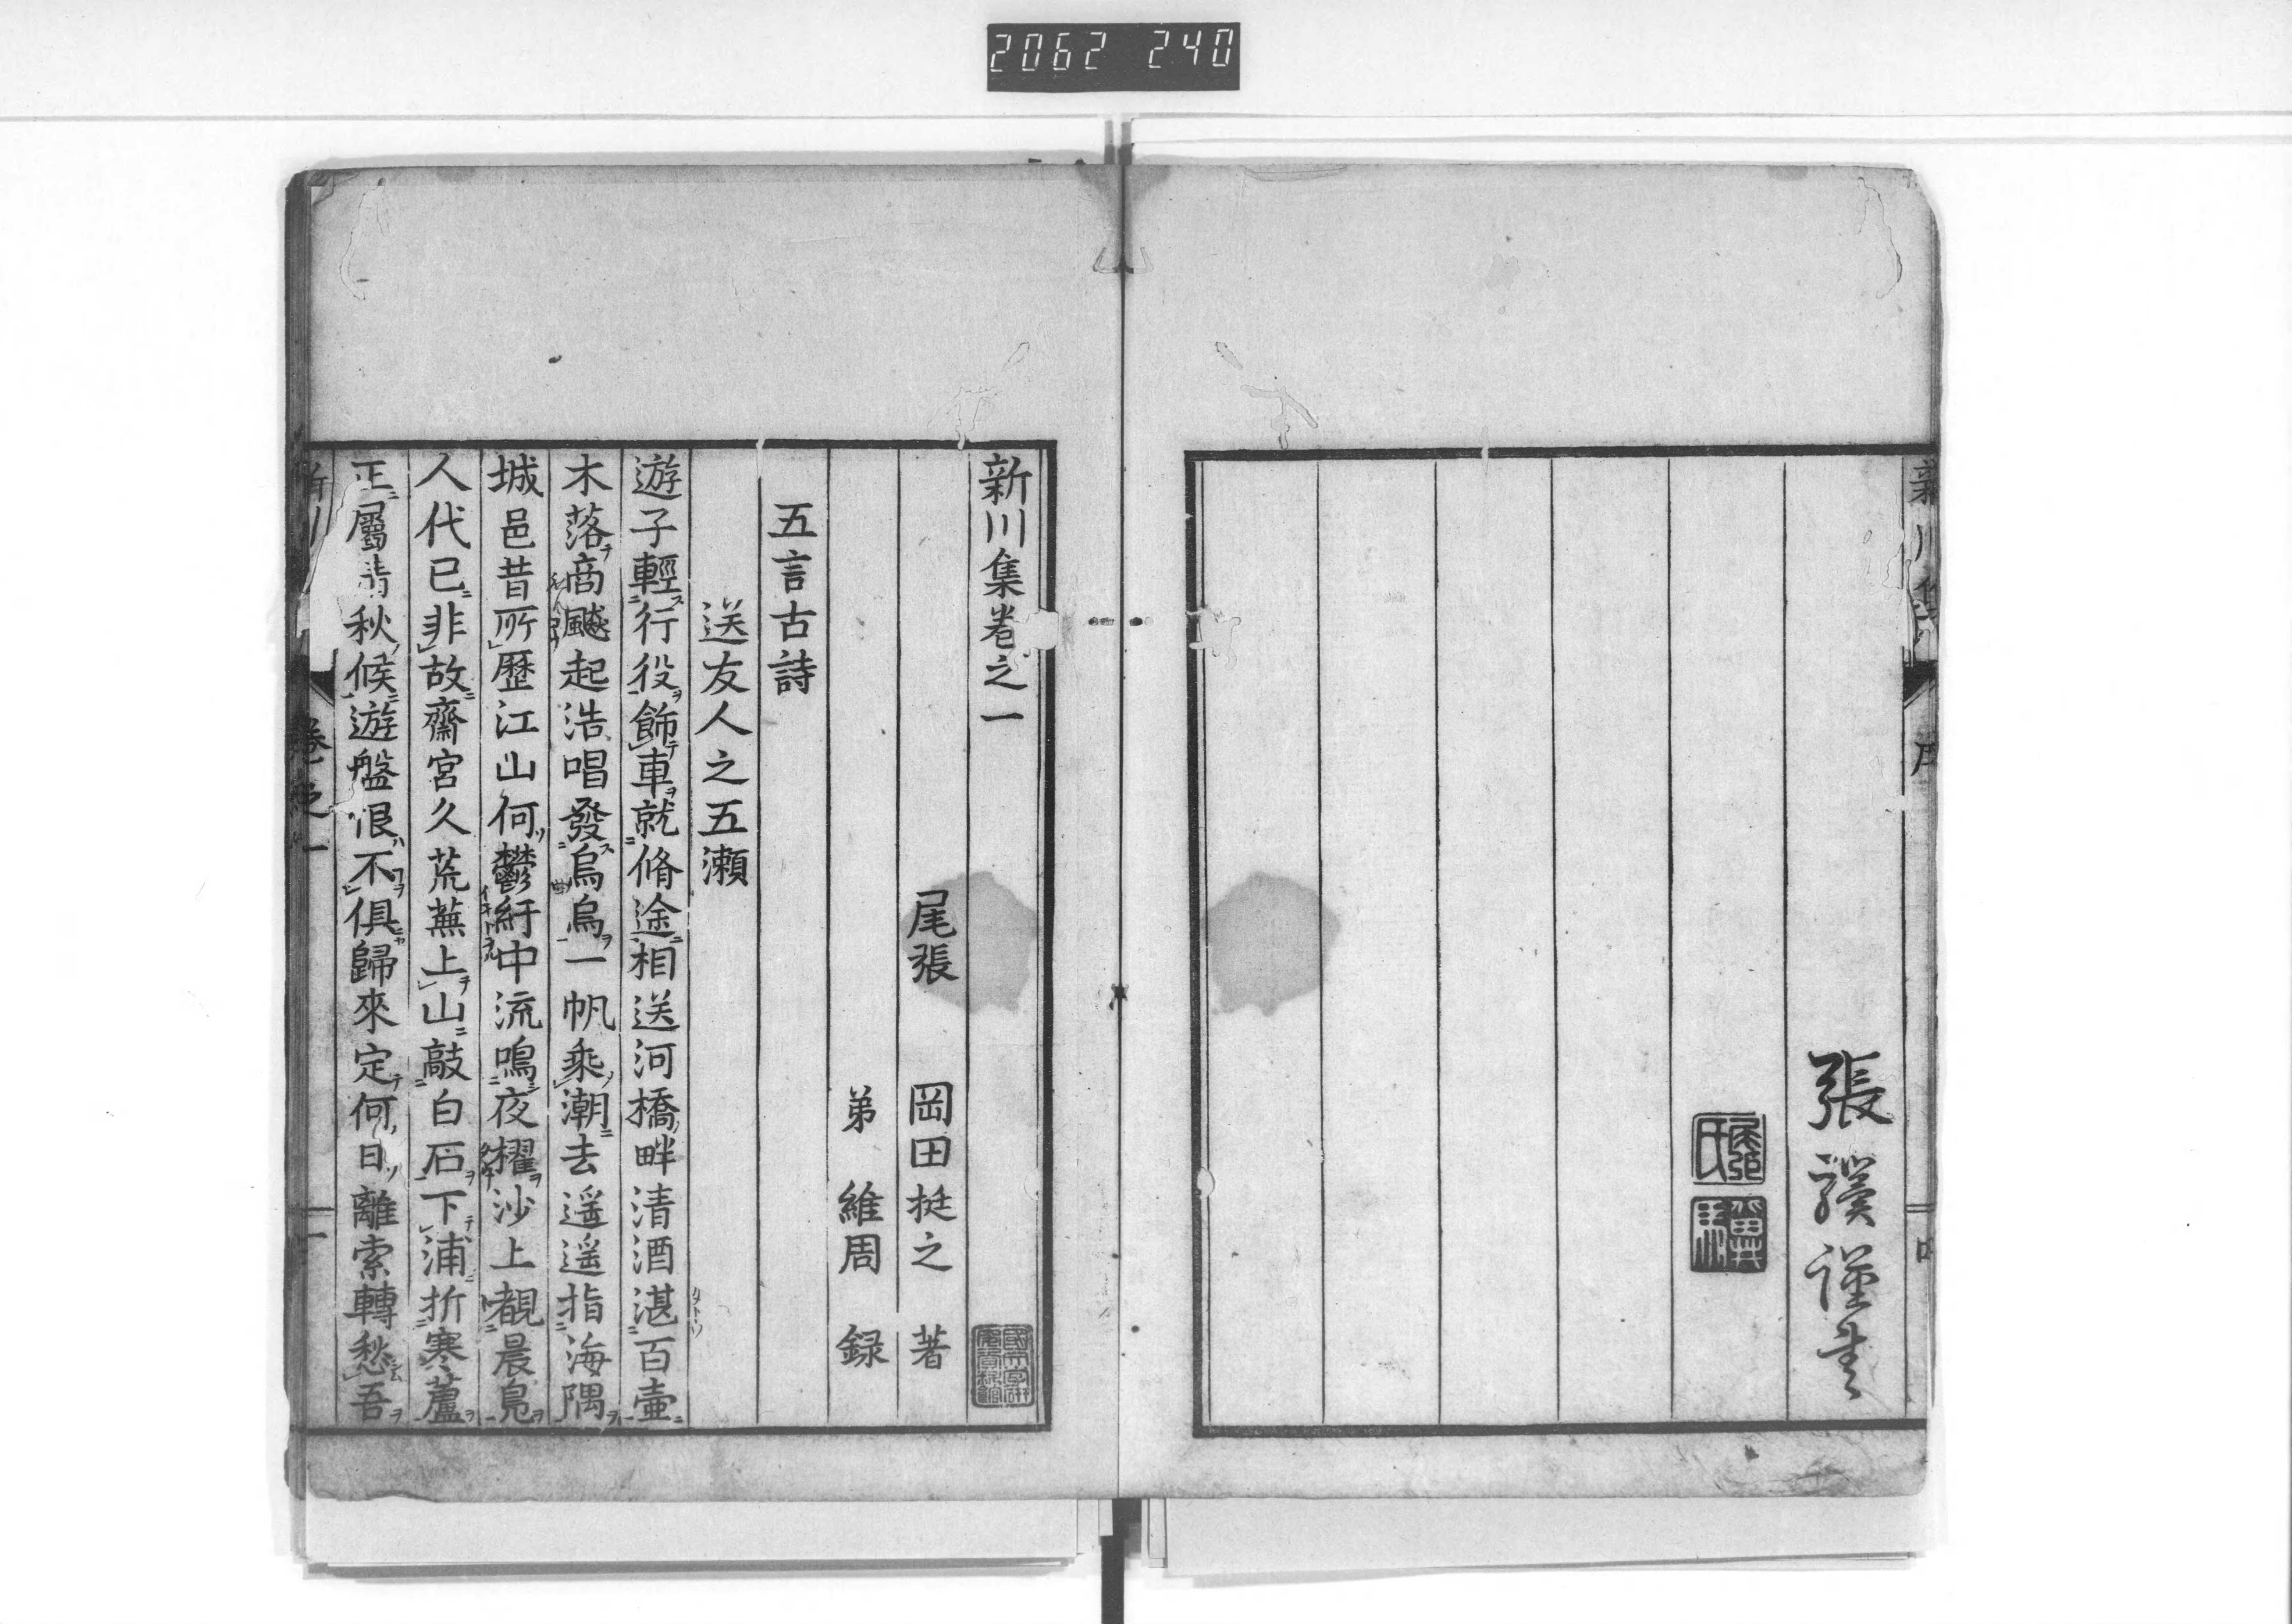 2062 240
張
謹書
新川集卷之一
尾張 岡田挺之 著
弟 維周 録
五言古詩
送友人之五瀬
遊子輕行役飾車就脩途相送河橋畔清酒湛百壷
木落商飇起浩唱發烏烏一帆乘潮去遥遥指海隅
城邑昔所歷江山何鬱紆中流鳴夜櫂沙上覩晨鳬
人代已非故齋宮久荒蕪上山敲白石下浦折寒蘆
正屬清秋候遊盤恨不俱歸來定何日離索轉愁吾